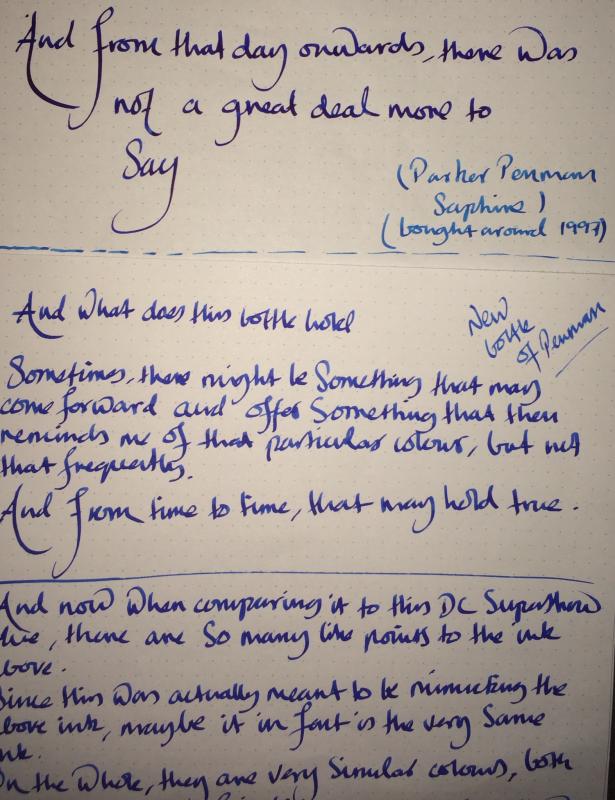 And from that day onwards, there was
not a great deal more to
Say
(Parker Penman
Saphire)
(bought around 1997)
And what does this bottle hold
New
bottle
of Penman
Sometimes, there might be Something that may
come forward and offer Something that then
reminds me of that particular colour, but not
that frequently.
And from time to time, that may hold true.
And now when comparing it to this DC Supershow
there are So many like points to the ink
above.
Since this was actually meant to be mimicking the
above ink, maybe it in fact is the very Same
ink.
On the Whole, they are very Similar colours, both